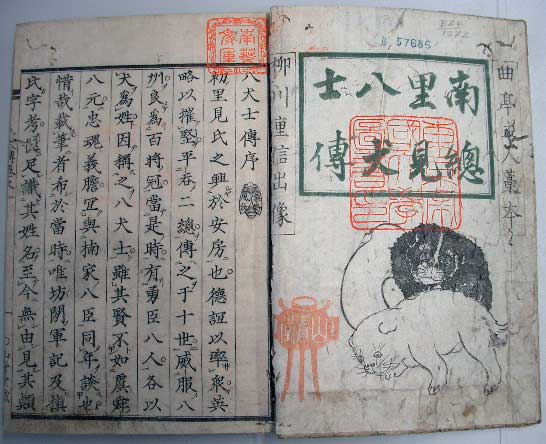 曲亭主人藁本
南總
里見
八犬
士傳
柳川重信出像
南葵文庫
八犬士傳序
初里見氏之興於安房也德誼以率衆英
略以摧堅平呑二總傳之于十世威服八
州良為百將冠當是時有勇臣八人各以
犬為姓因稱之八犬士雖其賢不如虞舜
八元忠魂義膽冝與楠家八臣同年談也
惜哉載筆者希於當時唯坊閒軍記及槇
氏字考僅足識其姓名至今無由見其顛
57685